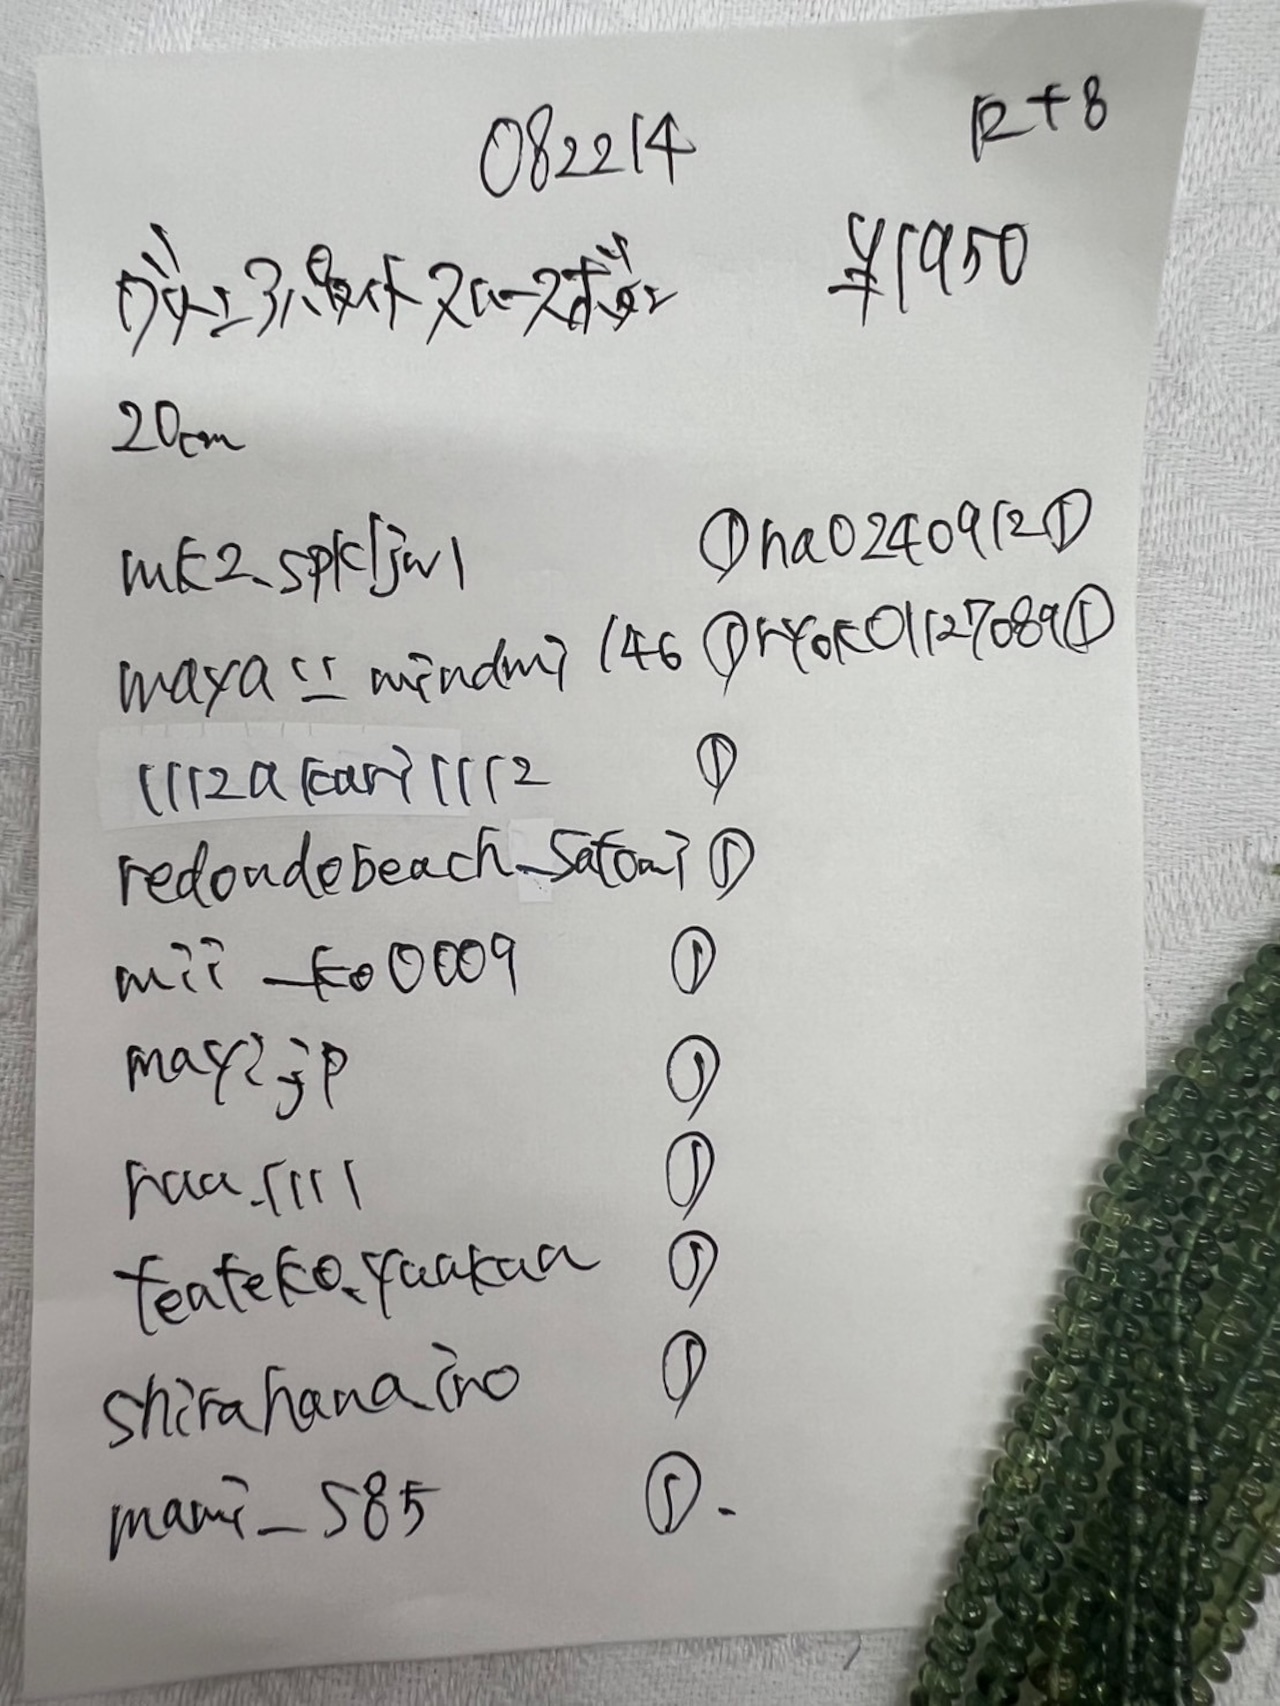 082214 12+8
¥1950
20cm
mk2_spkljw1 ① na0240912①
maya __ mindmi 146 ① ryoko1127089①
1112akari1112 ①
redondobeach_satomi ①
mii_ko0009 ①
mayijp ①
naa_1111 ①
teateko_yaakaa ①
shirahanaino ①
mami_585 ①